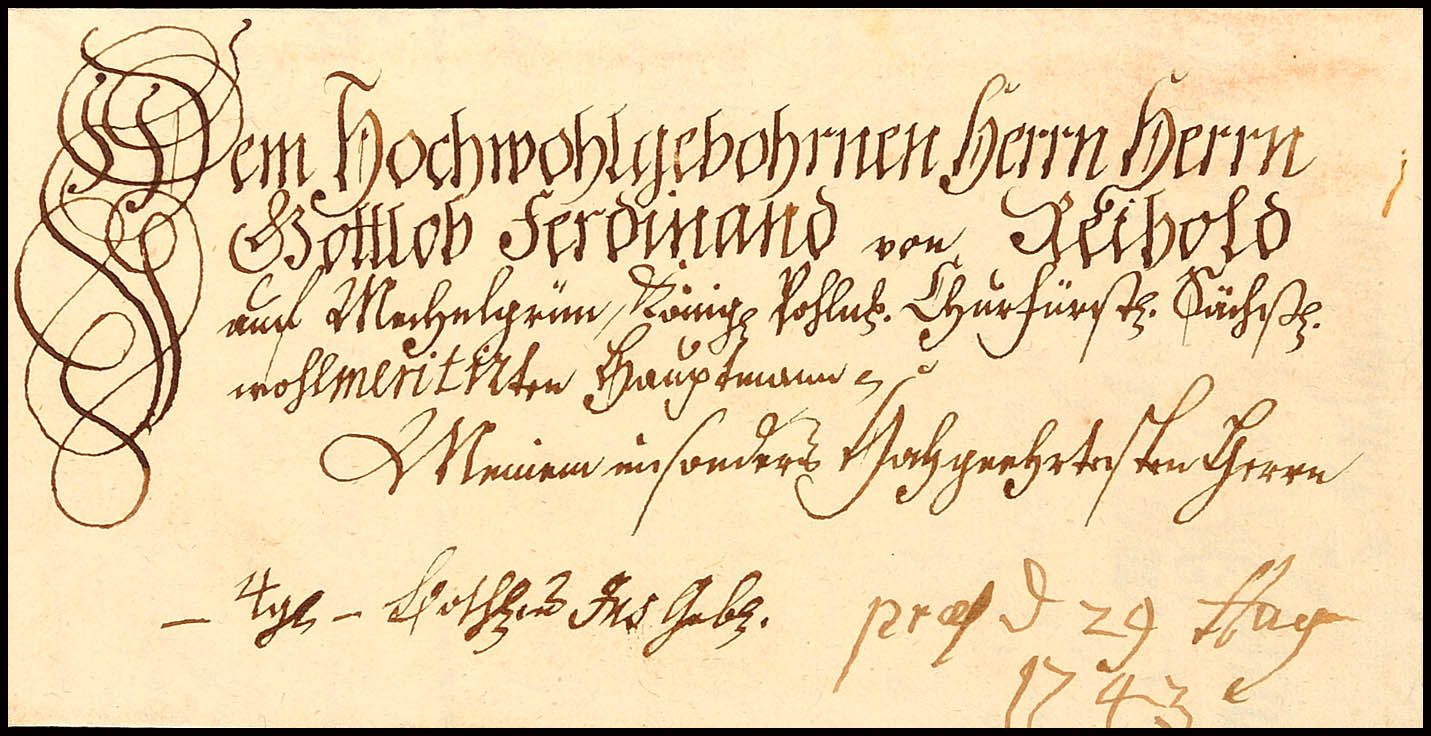 Dem Hochwohlgebohrnen Herrn Herrn
Gottlob Ferdinand von Reibold
auf Mechelgrün, Königl. Pohln. Churfürstl. Sächßl.
wohlmeritirten Hauptmann
Meinem insonders Hochgeehrtesten Herrn
– 4 gl – Bothen
præs d 29 May
1743